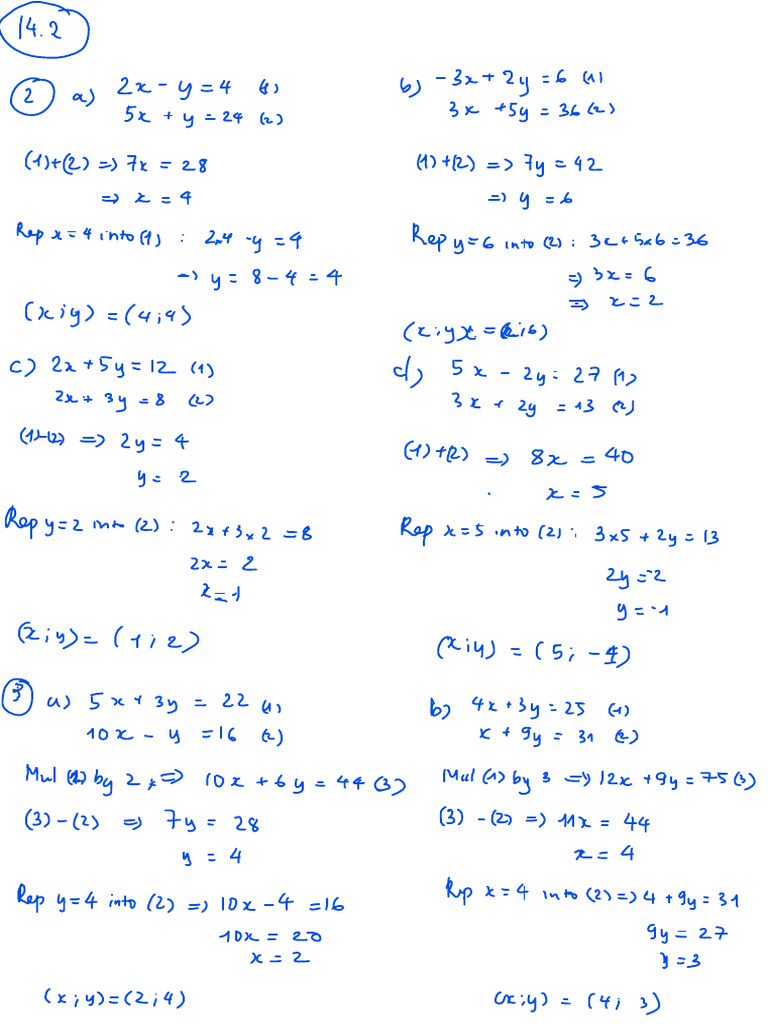 14.2
2 a) 2x - y = 4 (1)
5x + y = 24 (2)
(1)+(2) => 7x = 28
=> x = 4
Rep x = 4 into (1) : 2×4 - y = 4
=> y = 8 - 4 = 4
(x;y) = (4;4)
b) -3x + 2y = 6 (1)
3x + 5y = 36 (2)
(1)+(2) => 7y = 42
=> y = 6
Rep y = 6 into (2) : 3x + 5×6 = 36
=> 3x = 6
=> x = 2
(x;y) = (2;6)
c) 2x + 5y = 12 (1)
2x + 3y = 8 (2)
(1)-(2) => 2y = 4
y = 2
Rep y = 2 into (2) : 2x + 3×2 = 8
2x = 2
x = 1
(x;y) = (1;2)
d) 5x - 2y = 27 (1)
3x + 2y = 13 (2)
(1)+(2) => 8x = 40
x = 5
Rep x = 5 into (2) : 3×5 + 2y = 13
2y = -2
y = -1
(x;y) = (5; -1)
3 a) 5x + 3y = 22 (1)
10x - y = 16 (2)
Mul (1) by 2 => 10x + 6y = 44 (3)
(3) - (2) => 7y = 28
y = 4
Rep y = 4 into (2) => 10x - 4 = 16
10x = 20
x = 2
(x;y) = (2;4)
b) 4x + 3y = 25 (1)
x + 9y = 31 (2)
Mul (1) by 3 => 12x + 9y = 75 (3)
(3) - (2) => 11x = 44
x = 4
Rep x = 4 into (2) => 4 + 9y = 31
9y = 27
y = 3
(x;y) = (4; 3)